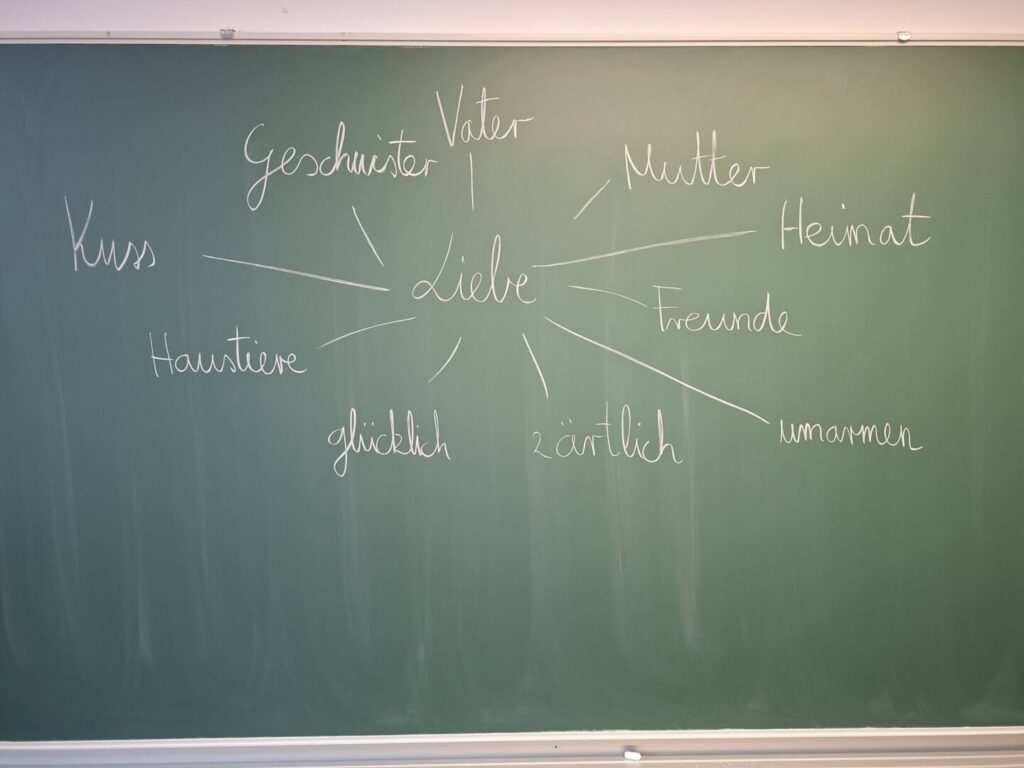 Vater
Geschwister
Mutter
Kuss
Heimat
Liebe
Freunde
Haustiere
glücklich
zärtlich
umarmen